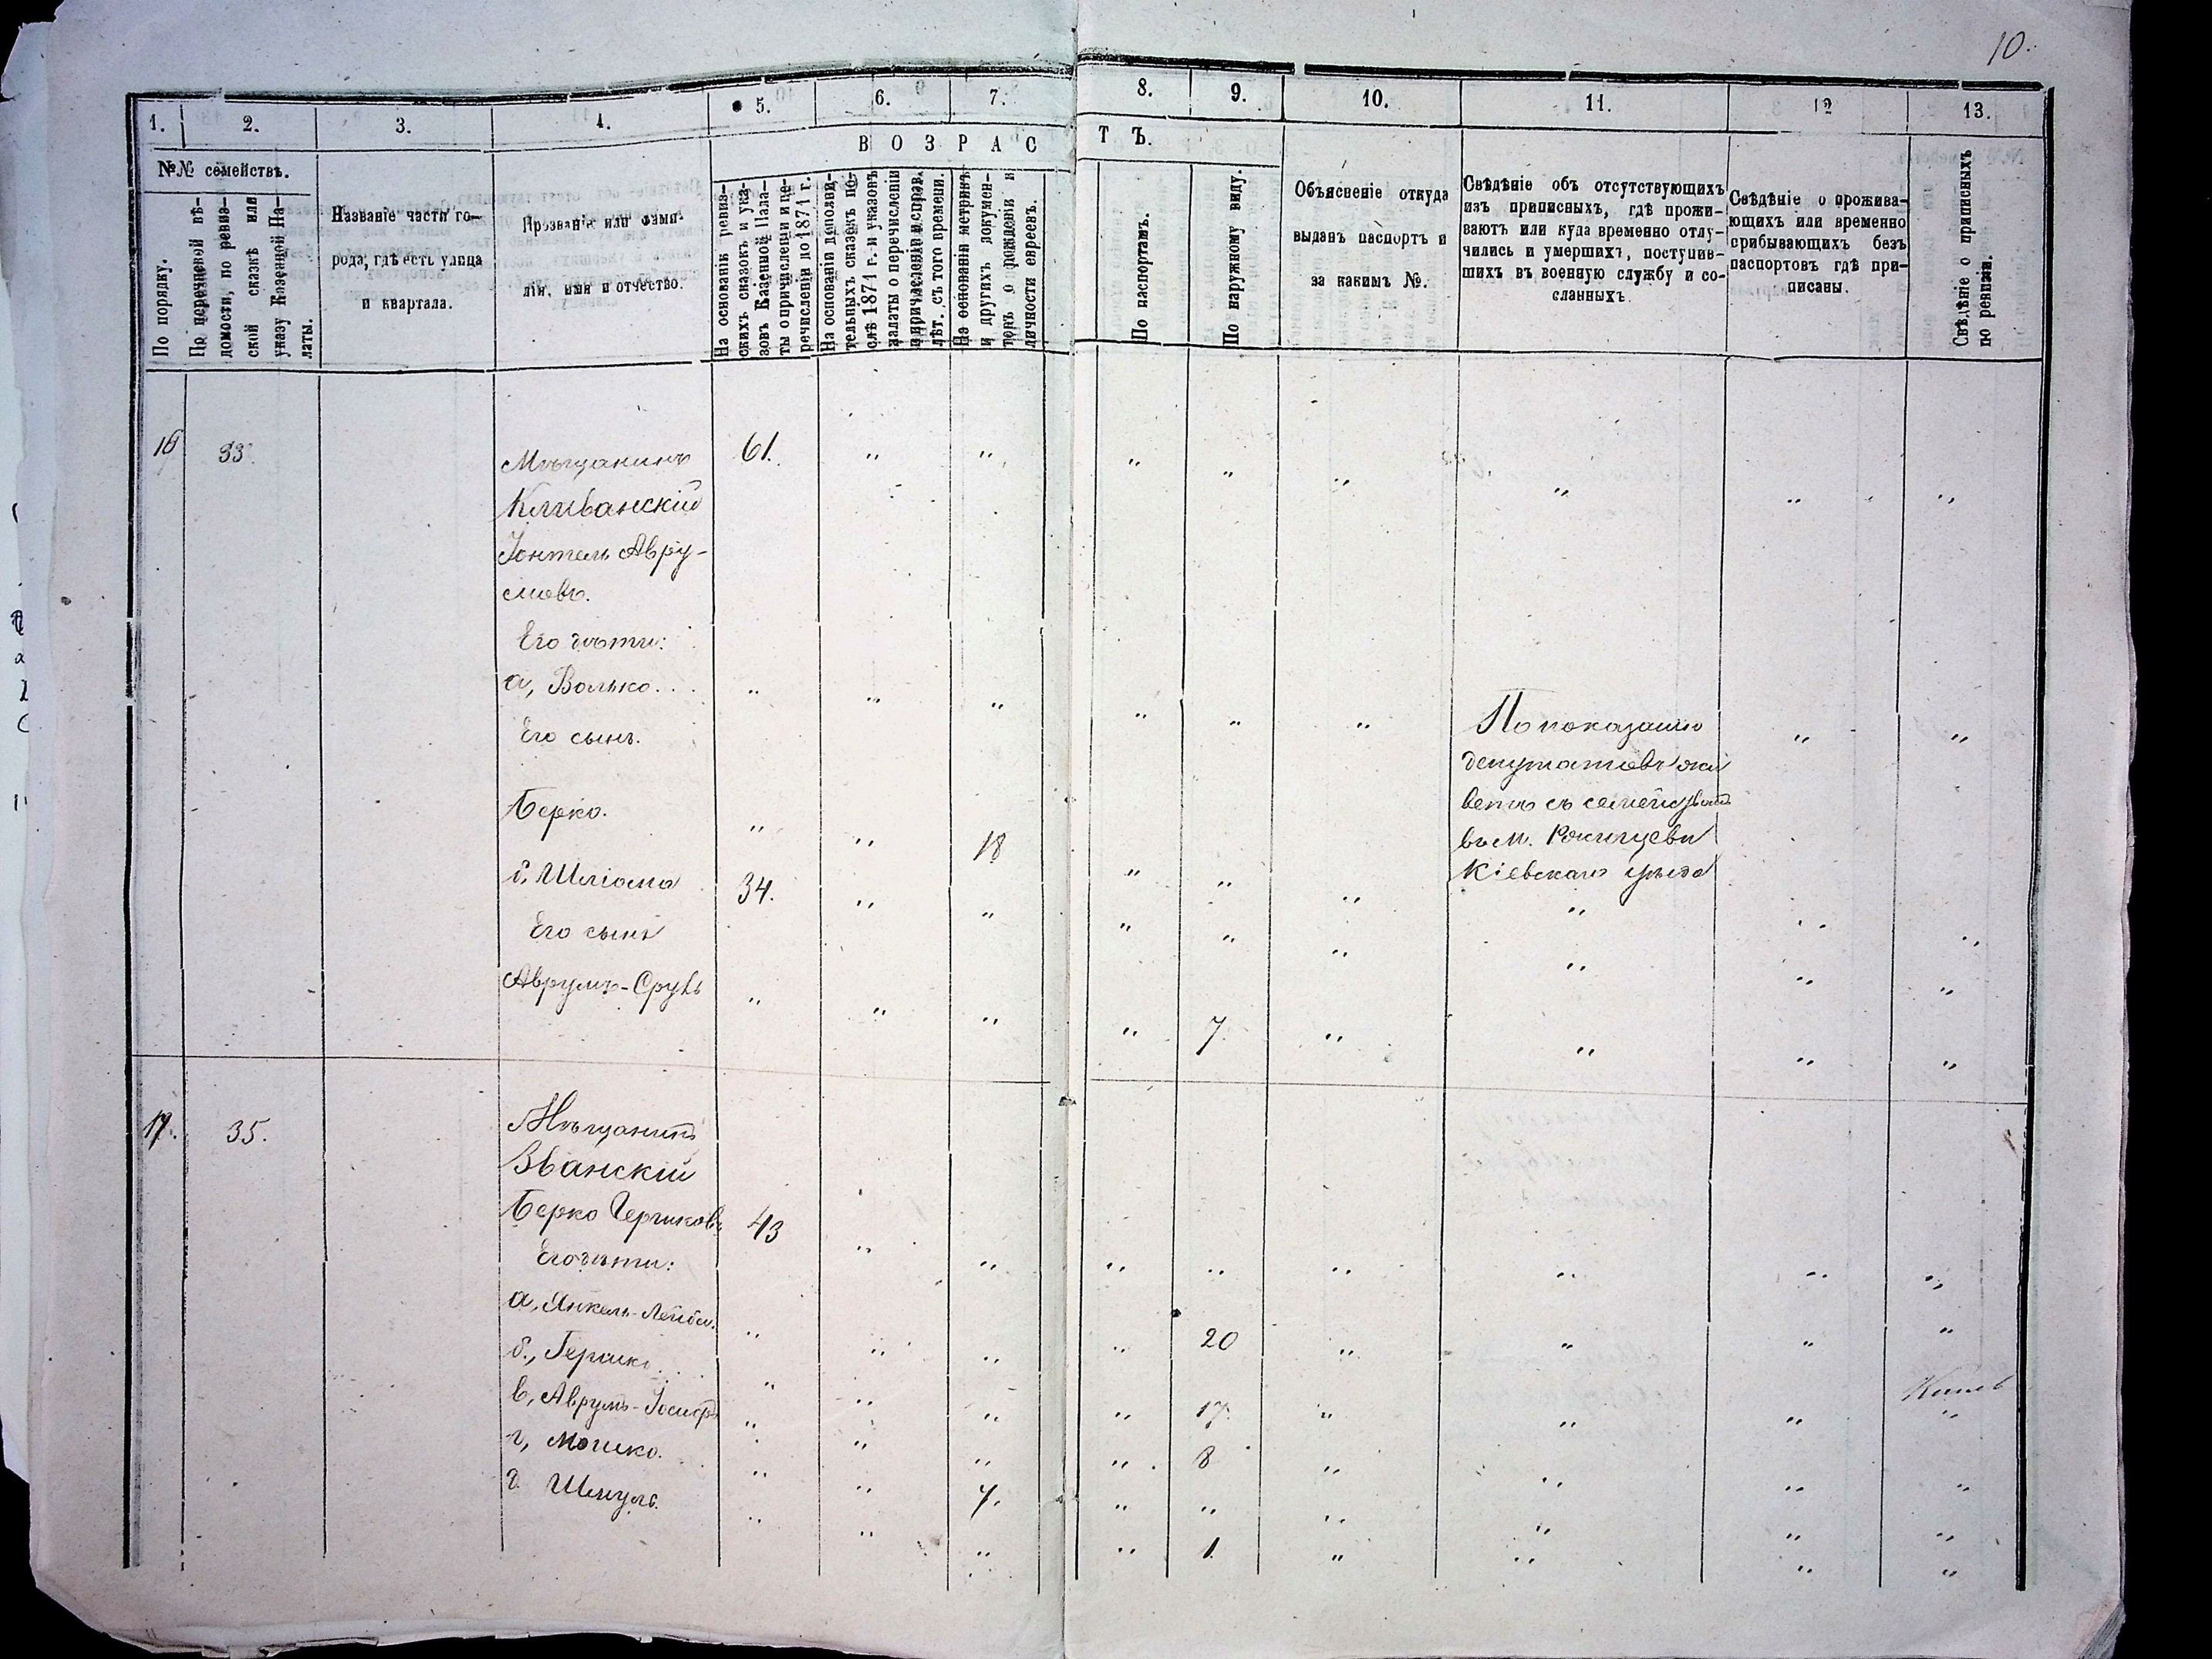 10.
1. 2. 3. 4. 5. 6. 7. 8. 9. 10. 11. 12 13.
В О З Р А С Т Ъ.
№№ семействъ.
По порядку.
По перечневой вѣ-
домости, по ревиз-
ской сказкѣ или
указу Казенной Па-
латы.
Названіе части го-
рода, гдѣ есть улица
и квартала.
Прозваніе или фами-
лія, имя и отчество.
На основаніи ревиз-
скихъ сказокъ и ука-
зовъ Казенной Пала-
ты о причисленіи и пе-
речисленіи до 1871 г.
На основаніи дополни-
тельныхъ сказокъ по-
слѣ 1871 г. и указовъ
палаты о перечисленіи
и причисленіи и справ.
лѣт. съ того времени.
На основаніи метрикъ
и другихъ докумен-
товъ о рожденіи и
личности евреевъ.
По паспортамъ.
По наружному виду.
Объясненіе откуда
выданъ паспортъ и
за какимъ №.
Свѣдѣніе объ отсутствующихъ
изъ приписныхъ, гдѣ прожи-
ваютъ или куда временно отлу-
чились и умершихъ, поступив-
шихъ въ военную службу и со-
сланныхъ.
Свѣдѣніе о прожива-
ющихъ или временно
прибывающихъ безъ
паспортовъ гдѣ при-
писаны.
Свѣдѣніе о приписныхъ
по ревизіи.
16 33. Мѣщанинъ 61. " " " " " " " "
Кливанскій
Іонтель Авру-
мовъ.
Его дѣти:
а, Волько... " " " " " " По показанію " "
Его сынъ.
депутатовъ жи
ветъ съ семействомъ
Берко. " " 18
въ м.
Кіевскаго уѣзда
" " " " "
б, Шліома 34. " " " " " " " "
Его сынъ
Аврумъ-Сруль " " " " 7. " " " "
17. 35. Мѣщанинъ
Званскій
Берко Гершковъ 43 " " " " " " " "
Его дѣти:
а, Янкель-Лейба. " " " " 20 " " " "
б., Гершко... " " " " 17. " " " "
в, Аврумъ-Іосифъ " " " " 8 " " " "
г, Мошко. " " 7. " " " " " "
д Шмуль. " " " " 1. " " " "